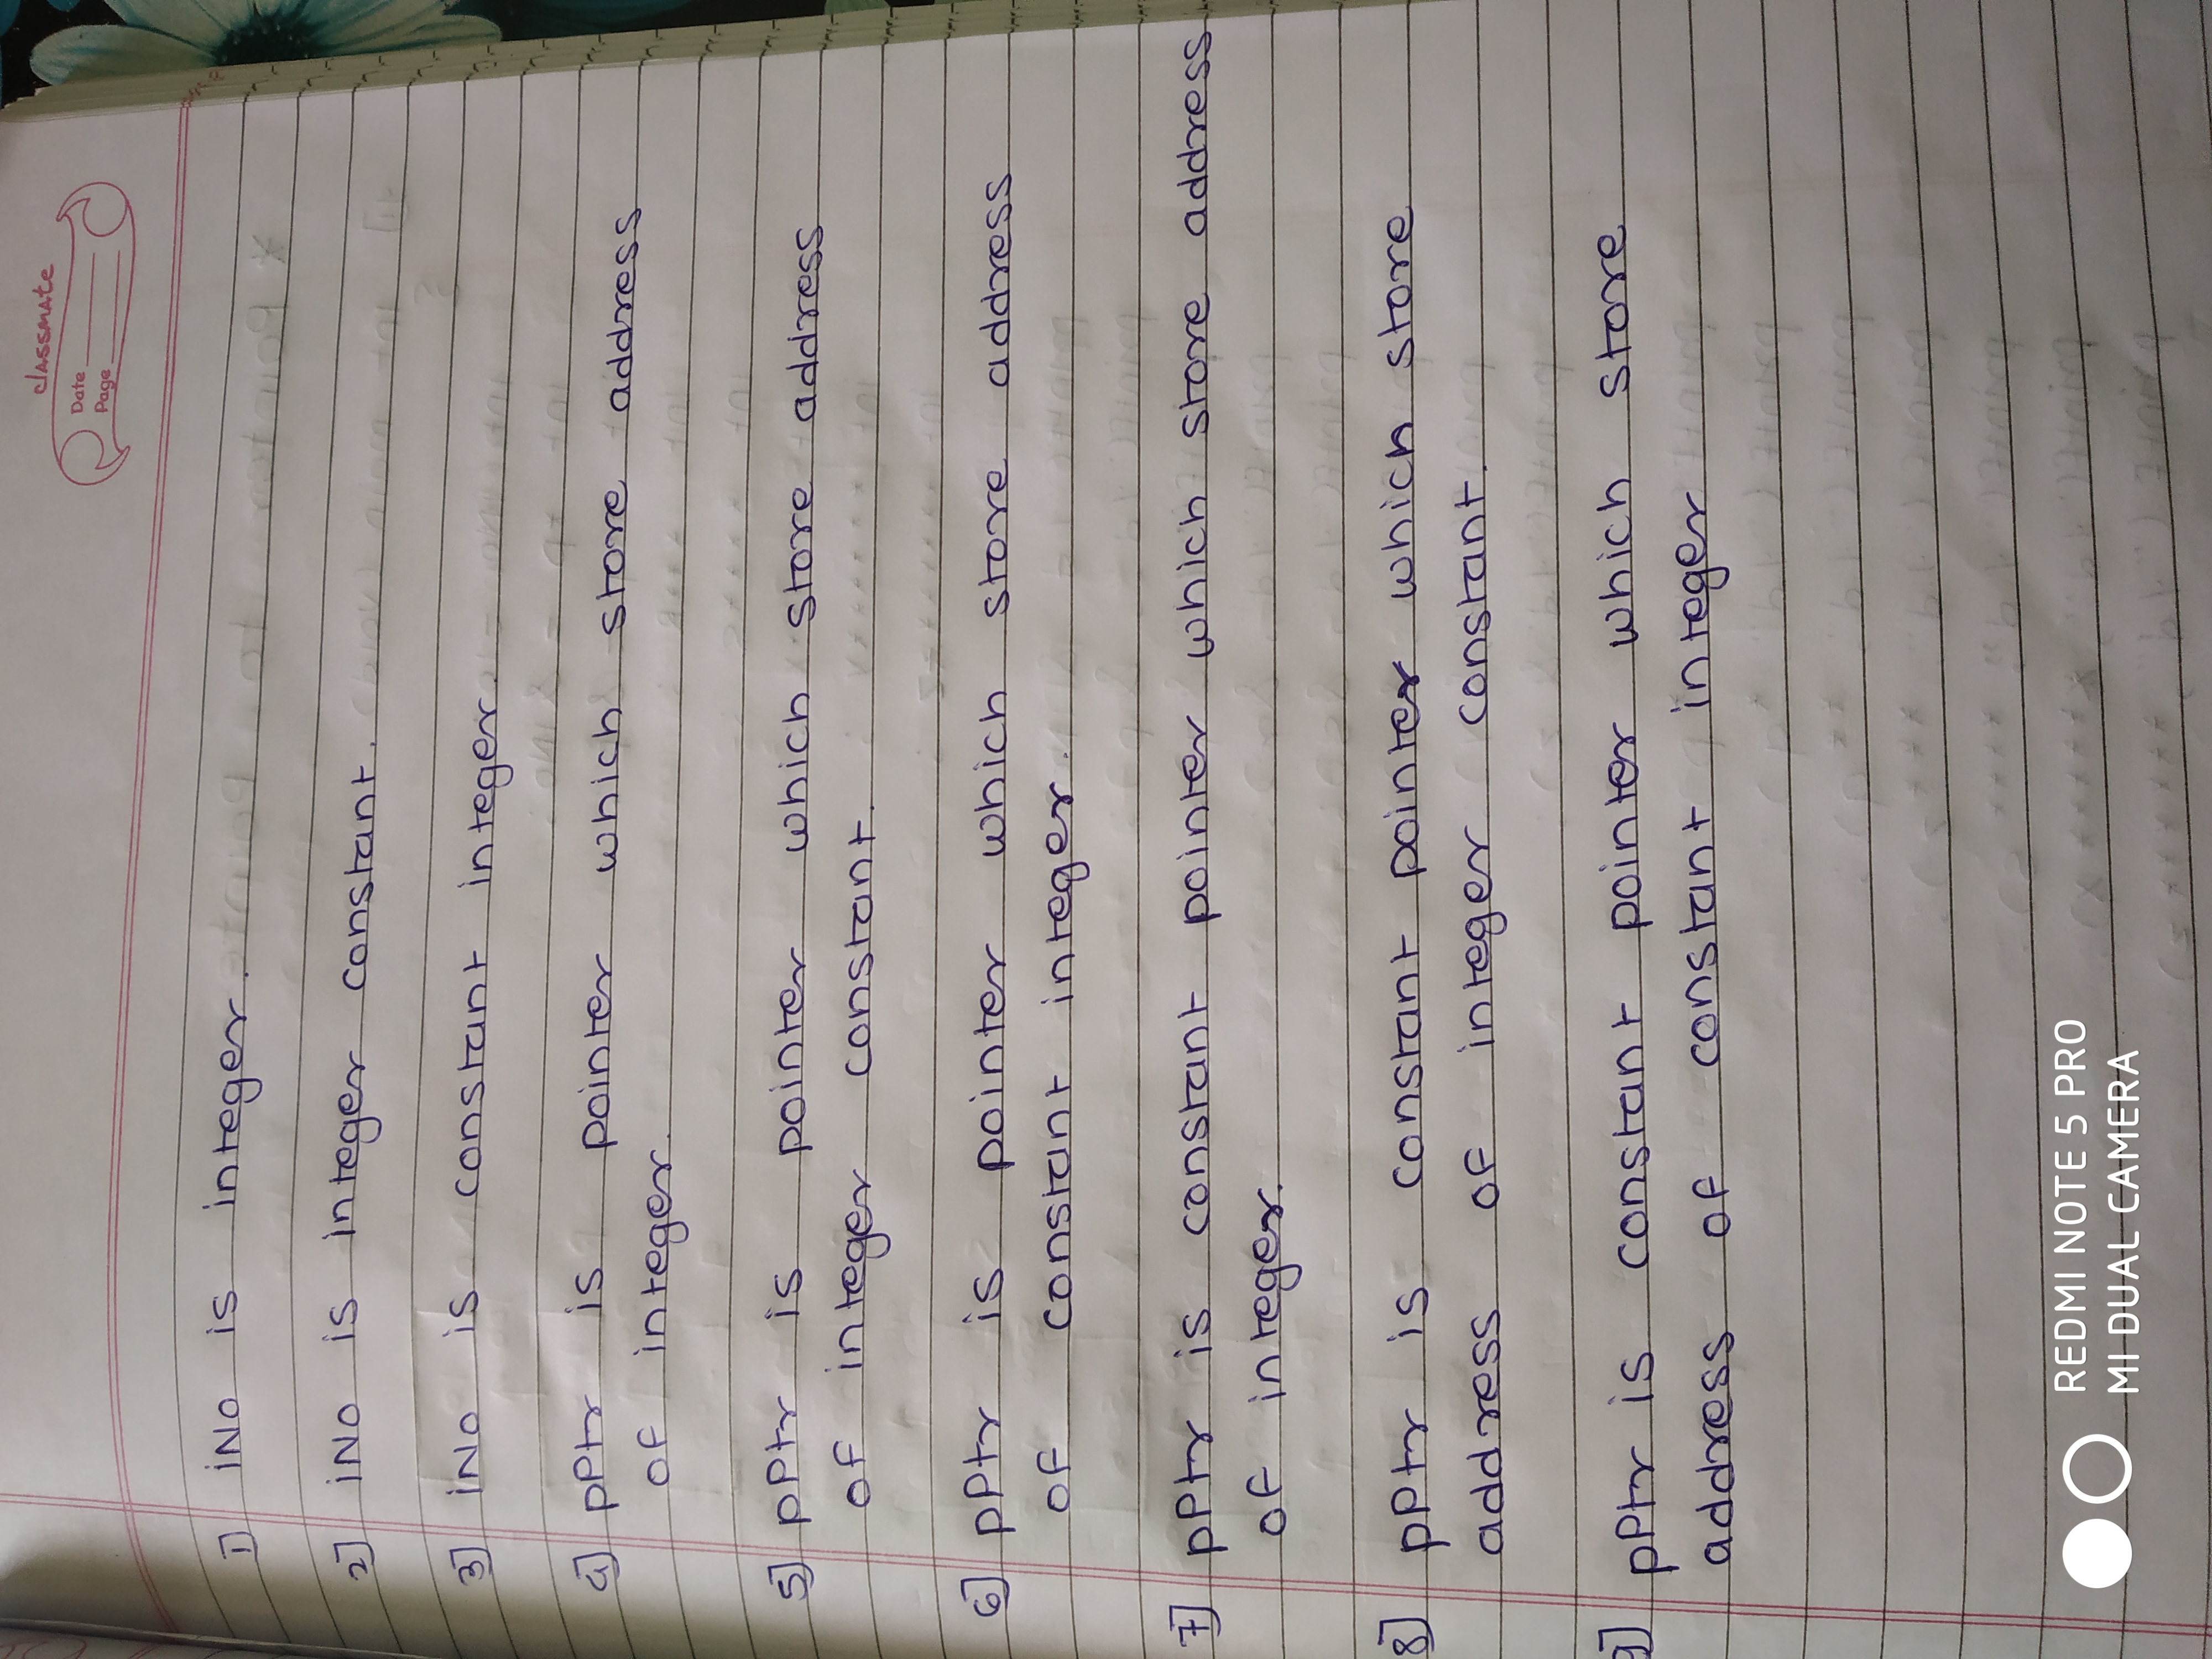 classmate
Date
Page
1] iNo is integer.
2] iNo is integer constant.
3] iNo is constant integer.
4] pPtr is pointer which store address
of integer.
5] pPtr is pointer which store address
of integer constant.
6] pPtr is pointer which store address
of constant integer.
7] pPtr is constant pointer which store address
of integer.
8] pPtr is constant pointer which store
address of integer constant.
9] pPtr is constant pointer which store
address of constant integer
REDMI NOTE 5 PRO
MI DUAL CAMERA